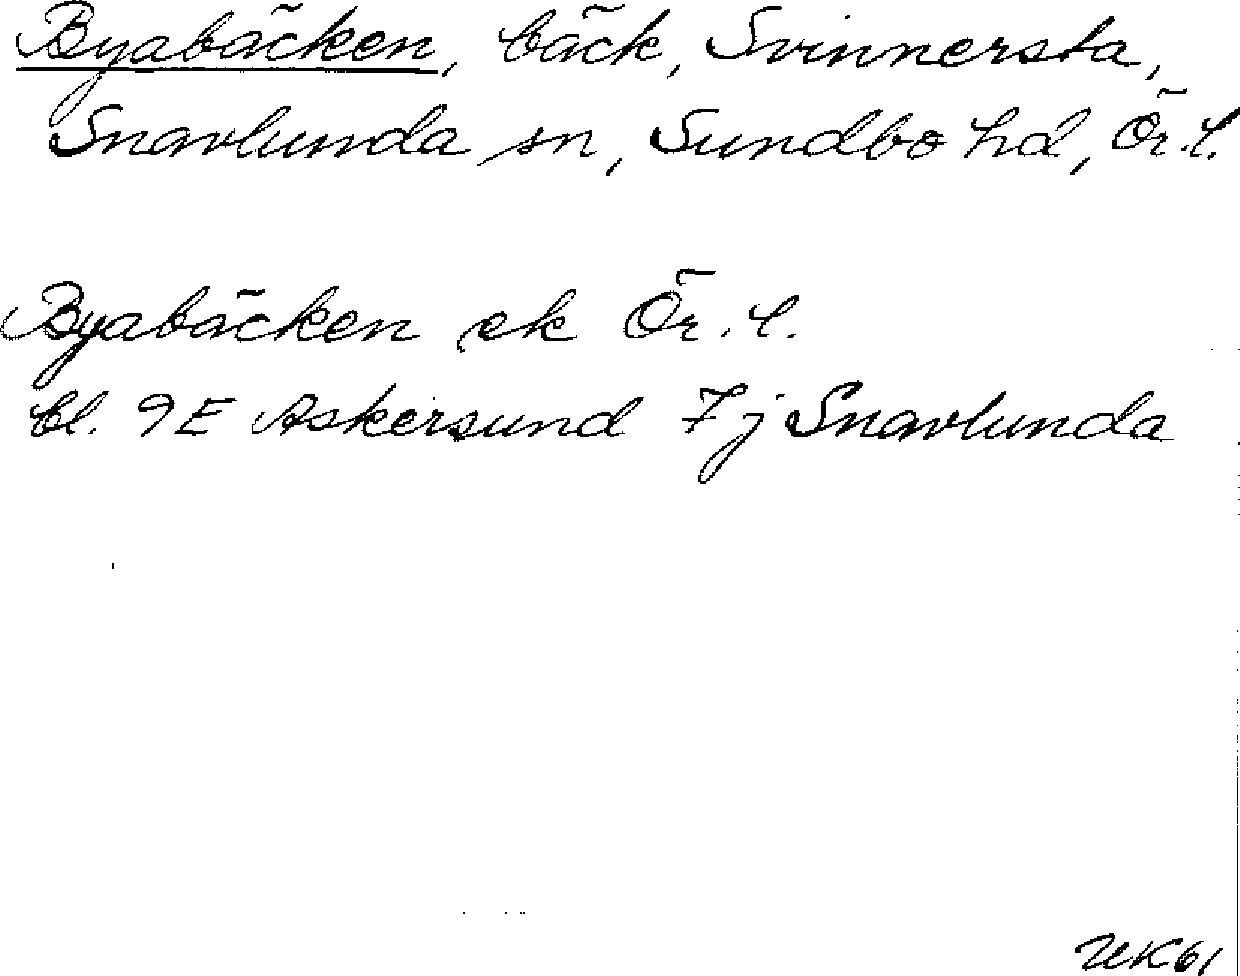 Byabäcken, bäck, Svinnersta,
Snavlunda sn, Sundbo hd, Ör. l.
Byabäcken ek Ör. l.
bl. 9E Askersund 7j Snavlunda
UK61